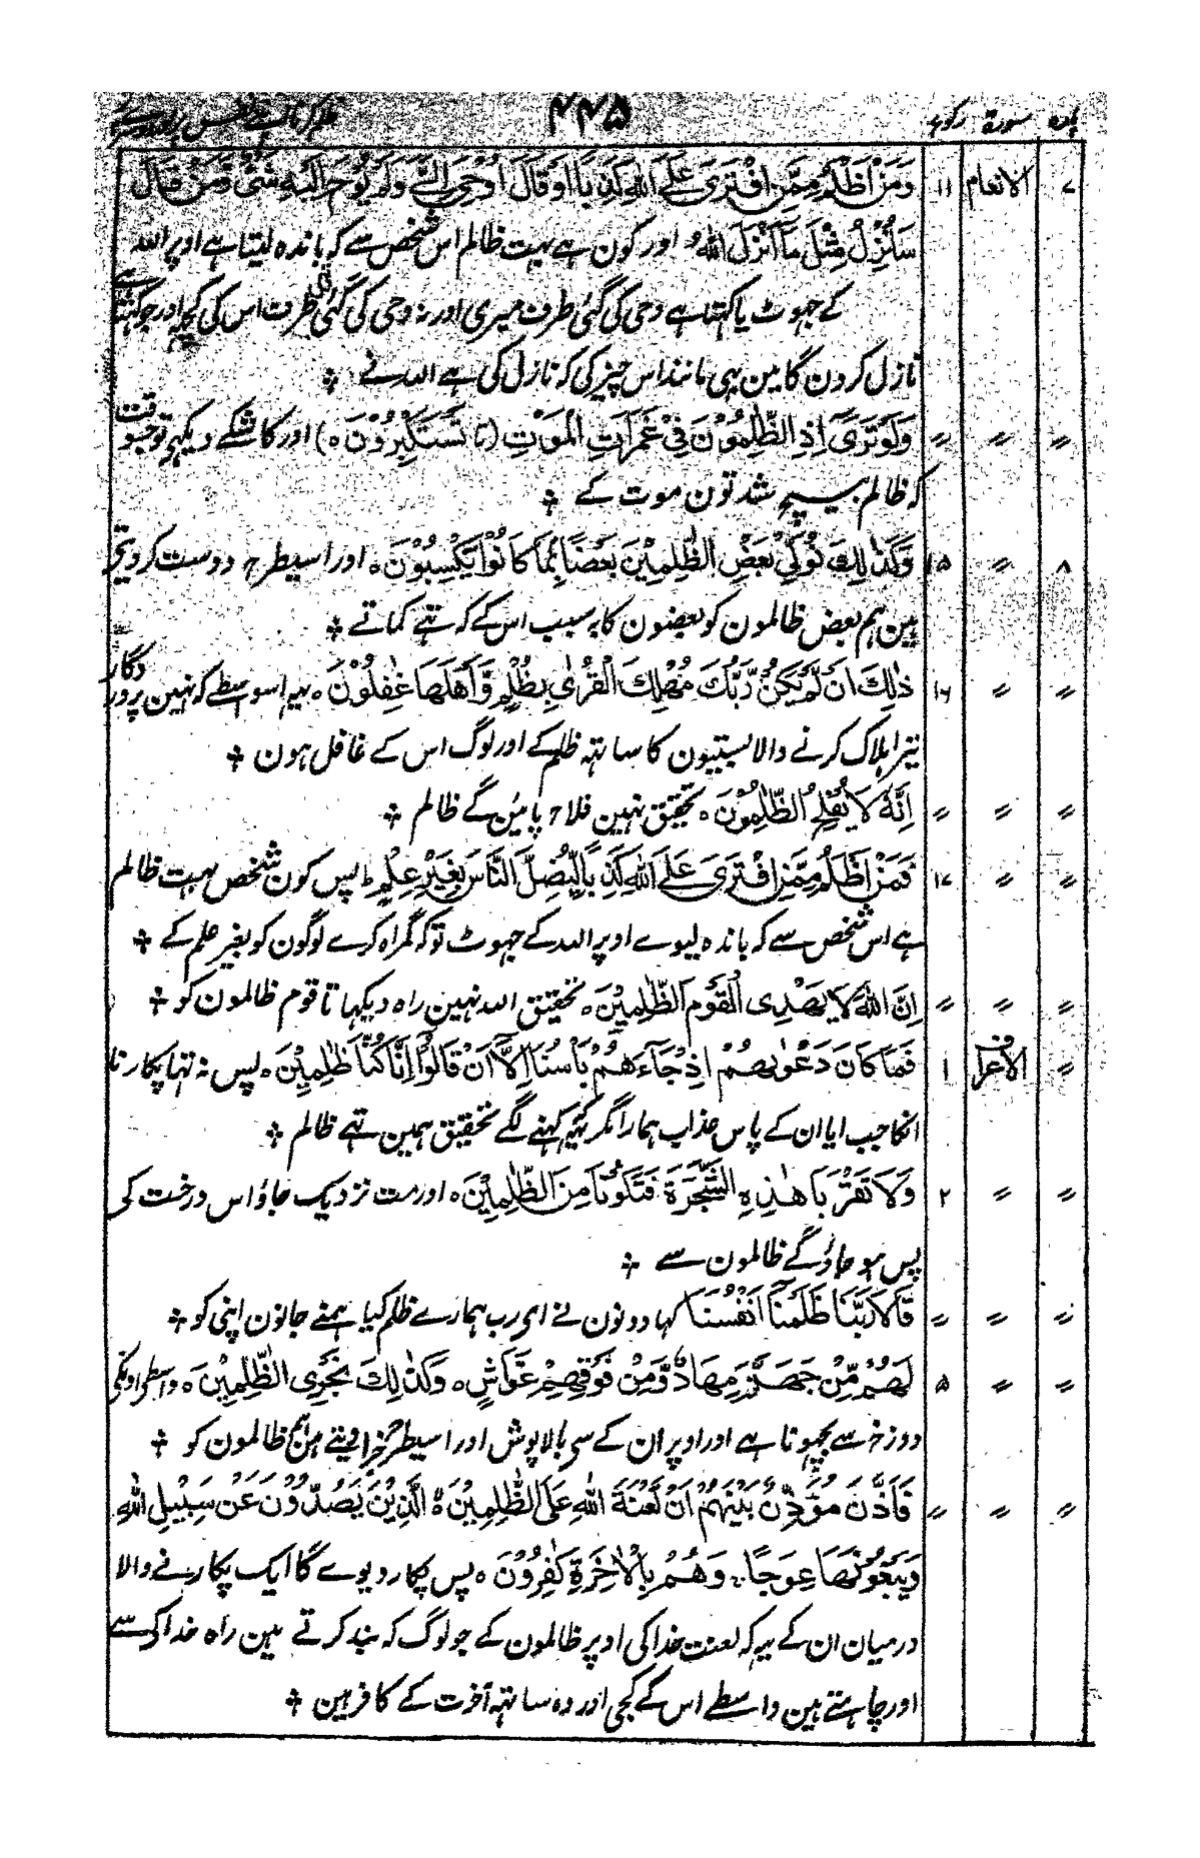 پارہ سورة رکوع ۴۴۵
۷ الانعام ۱۱ وَمَنْ اَظْلَمُ مِمَّنِ افْتَرٰى عَلَى اللّٰهِ كَذِبًا اَوْ قَالَ اُوْحِيَ اِلَيَّ وَلَمْ يُوْحَ اِلَيْهِ شَيْءٌ وَّمَنْ قَالَ
سَاُنْزِلُ مِثْلَ مَآ اَنْزَلَ اللّٰهُ ؕ اور کون ہے بہت ظالم اس شخص سے کہ باندہ لیتا ہے اوپر اللہ
کے جہوٹ یا کہتا ہے وحی کی گئی طرف میری اور نہ وحی کی گئی طرف اس کی کچہ اور جو کہتا ہے
نازل کرون گا مین بہی مانند اس چیز کی کہ نازل کی ہے اللہ نے ÷
〃 〃 〃 وَلَوْ تَرٰٓى اِذِ الظّٰلِمُوْنَ فِيْ غَمَرَاتِ الْمَوْتِ (تا تَسْتَكْبِرُوْنَ ه) اور کاشکے دیکہی تو جسوقت
کہ ظالم بیچ شدتون موت کے ÷
۸ 〃 ۱۵ وَكَذٰلِكَ نُوَلِّيْ بَعْضَ الظّٰلِمِيْنَ بَعْضًا بِمَا كَانُوْا يَكْسِبُوْنَ ه اور اسیطرح دوست کر دیتی
ہین ہم بعض ظالمون کو بعضون کا بہ سبب اس کے کہ تہے کماتے ÷
〃 〃 ۱۶ ذٰلِكَ اَنْ لَّمْ يَكُنْ رَّبُّكَ مُهْلِكَ الْقُرٰى بِظُلْمٍ وَّاَهْلُهَا غٰفِلُوْنَ ه یہ اسواسطے کہ نہین پروردگار
تیرا ہلاک کرنے والا بستیون کا ساتہہ ظلم کے اور لوگ اس کے غافل ہون ÷
〃 〃 〃 اِنَّهٗ لَا يُفْلِحُ الظّٰلِمُوْنَ ه تحقیق نہین فلاح پائین گے ظالم ÷
〃 〃 ۱۷ فَمَنْ اَظْلَمُ مِمَّنِ افْتَرٰى عَلَى اللّٰهِ كَذِبًا لِّيُضِلَّ النَّاسَ بِغَيْرِ عِلْمٍ ؕ پس کون شخص بہت ظالم
ہے اس شخص سے کہ باندہ لیوے اوپر اللہ کے جہوٹ تو کہ گمراہ کرے لوگون کو بغیر علم کے ÷
〃 〃 〃 اِنَّ اللّٰهَ لَا يَهْدِى الْقَوْمَ الظّٰلِمِيْنَ ه تحقیق اللہ نہین راہ دیکہاتا قوم ظالمون کو ÷
〃 الاعراف ۱ فَمَا كَانَ دَعْوٰىهُمْ اِذْ جَآءَهُمْ بَاْسُنَآ اِلَّآ اَنْ قَالُوْٓا اِنَّا كُنَّا ظٰلِمِيْنَ ه پس نہ تہا پکارنا
انکا جب ایا ان کے پاس عذاب ہمارا مگر یہہ کہنے لگے تحقیق ہمین تہے ظالم ÷
〃 〃 ۲ وَلَا تَقْرَبَا هٰذِهِ الشَّجَرَةَ فَتَكُوْنَا مِنَ الظّٰلِمِيْنَ ه اور مت نزدیک جاؤ اس درخت کی
پس ہو جاؤ گے ظالمون سے ÷
〃 〃 〃 قَالَا رَبَّنَا ظَلَمْنَآ اَنْفُسَنَا کہا دونون نے ای رب ہمارے ظلم کیا ہمنے جانون اپنی کو ÷
〃 〃 ۵ لَهُمْ مِّنْ جَهَنَّمَ مِهَادٌ وَّمِنْ فَوْقِهِمْ غَوَاشٍ ه وَكَذٰلِكَ نَجْزِى الظّٰلِمِيْنَ ه واسطی اونکی
دوزخ سے بچہونا ہے اور اوپر ان کے سی بالاپوش اور اسیطرح جزا دیتے ہین ہم ظالمون کو ÷
〃 〃 〃 فَاَذَّنَ مُؤَذِّنٌۢ بَيْنَهُمْ اَنْ لَّعْنَةُ اللّٰهِ عَلَى الظّٰلِمِيْنَ ه الَّذِيْنَ يَصُدُّوْنَ عَنْ سَبِيْلِ اللّٰهِ
وَيَبْغُوْنَهَا عِوَجًا ۚ وَهُمْ بِالْاٰخِرَةِ كٰفِرُوْنَ ه پس پکار دیوے گا ایک پکارنے والا
درمیان ان کے یہ کہ لعنت خدا کی اوپر ظالمون کے جو لوگ کہ بند کرتے ہین راہ خدا کی سے
اور چاہتے ہین واسطے اس کے کجی اور وہ ساتہہ آخرت کے کافر ہین ÷